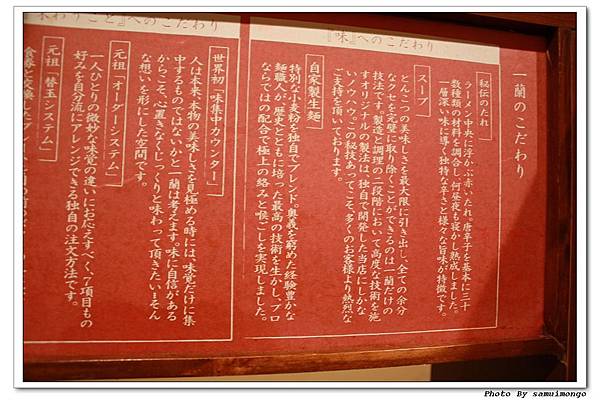 一蘭のこだわり
『味』へのこだわり
秘伝のたれ
ラーメン中央に浮かぶ赤いたれ。唐辛子を基本に三十
数種類の材料を調合し、何昼夜も寝かし熟成しました。
一層深い味に導く独特な辛さと様々な旨味が特徴です。
スープ
とんこつの美味しさを最大限に引き出し、全ての余分
なクセを完璧に取り除くことができるのは一蘭だけの
技法です。製造と調理の二段階において高度な技術を施
すオリジナルの製法は、独自で開発した当店にしかな
いノウハウ。この秘技あってこそ、多くのお客様より熱烈な
ご支持を頂いております。
自家製生麺
特別な小麦粉を独自でブレンド。奥義を窮めた経験豊かな
麺職人が、歴史とともに培った最高の技術を生かし、プロ
ならではの配合で極上の絡みと喉ごしを実現しました。
味わうこと』へのこだわり
世界初「味集中カウンター」
人は本来、本物の美味しさを見極める時には、味覚だけに集
中するものではないかと一蘭は考えます。味に自信がある
からこそ、心置きなくじっくりと味わって頂きたい…そん
な想いを形にした空間です。
元祖「オーダーシステム」
一人ひとりの微妙な味覚の違いにお応えすべく、7項目もの
好みを自分流にアレンジできる独自の注文方法です。
元祖「替玉システム」
Photo By samuimongo